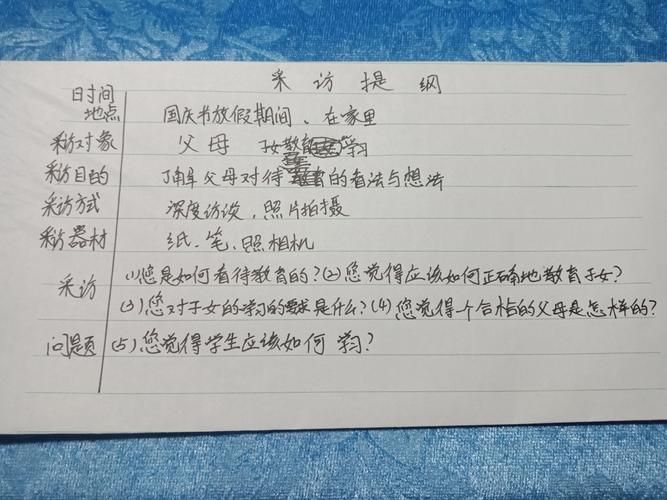 采访提纲
时间
地点 国庆节放假期间、在家里
采访对象 父母 子女教育 学习
采访目的 了解父母对待的看法与想法
采访方式 深度访谈,照片拍摄
采访器材 纸、笔、照相机
采访 (1)您是如何看待教育的?(2)您觉得应该如何正确地教育子女?
(3)您对子女的学习的要求是什么?(4)您觉得个合格的父母是怎样的?
问题 (5)您觉得学生应该如何学习?